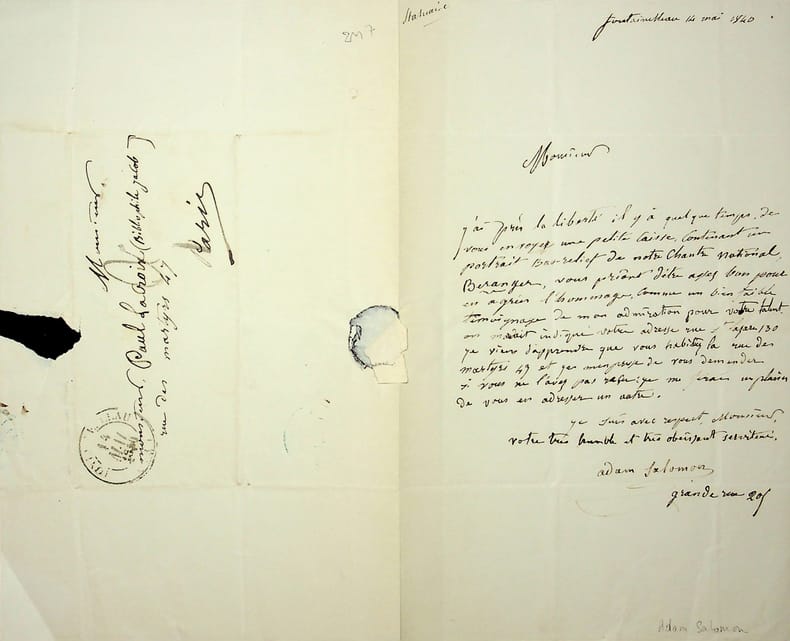 Monsieur
monsieur Paul Lacroix (Bibliophile jacob)
rue des martyrs 47
Paris
2M7
Statuaire
fontainebleau 14 mai 1840.
Monsieur
j'ai pris la liberté il y à quelque temps, de
vous envoyer une petite caisse, contenant un
portrait Bas-relief de notre Chantre national,
Béranger, vous priant d'être assez bon pour
en agréer l'hommage, comme un bien faible
témoignage de mon admiration pour votre talent.
on m'avait indiqué votre adresse rue 30
je viens d'apprendre que vous habitez la rue des
martyrs 47 et je m'empresse de vous demander
si vous ne l'avez pas reçu: je me ferais un plaisir
de vous en adresser un autre.
je suis avec respect, Monsieur,
votre très humble et très obéissant serviteur.
adam Salomon
grande rue 205
Adam Salomon